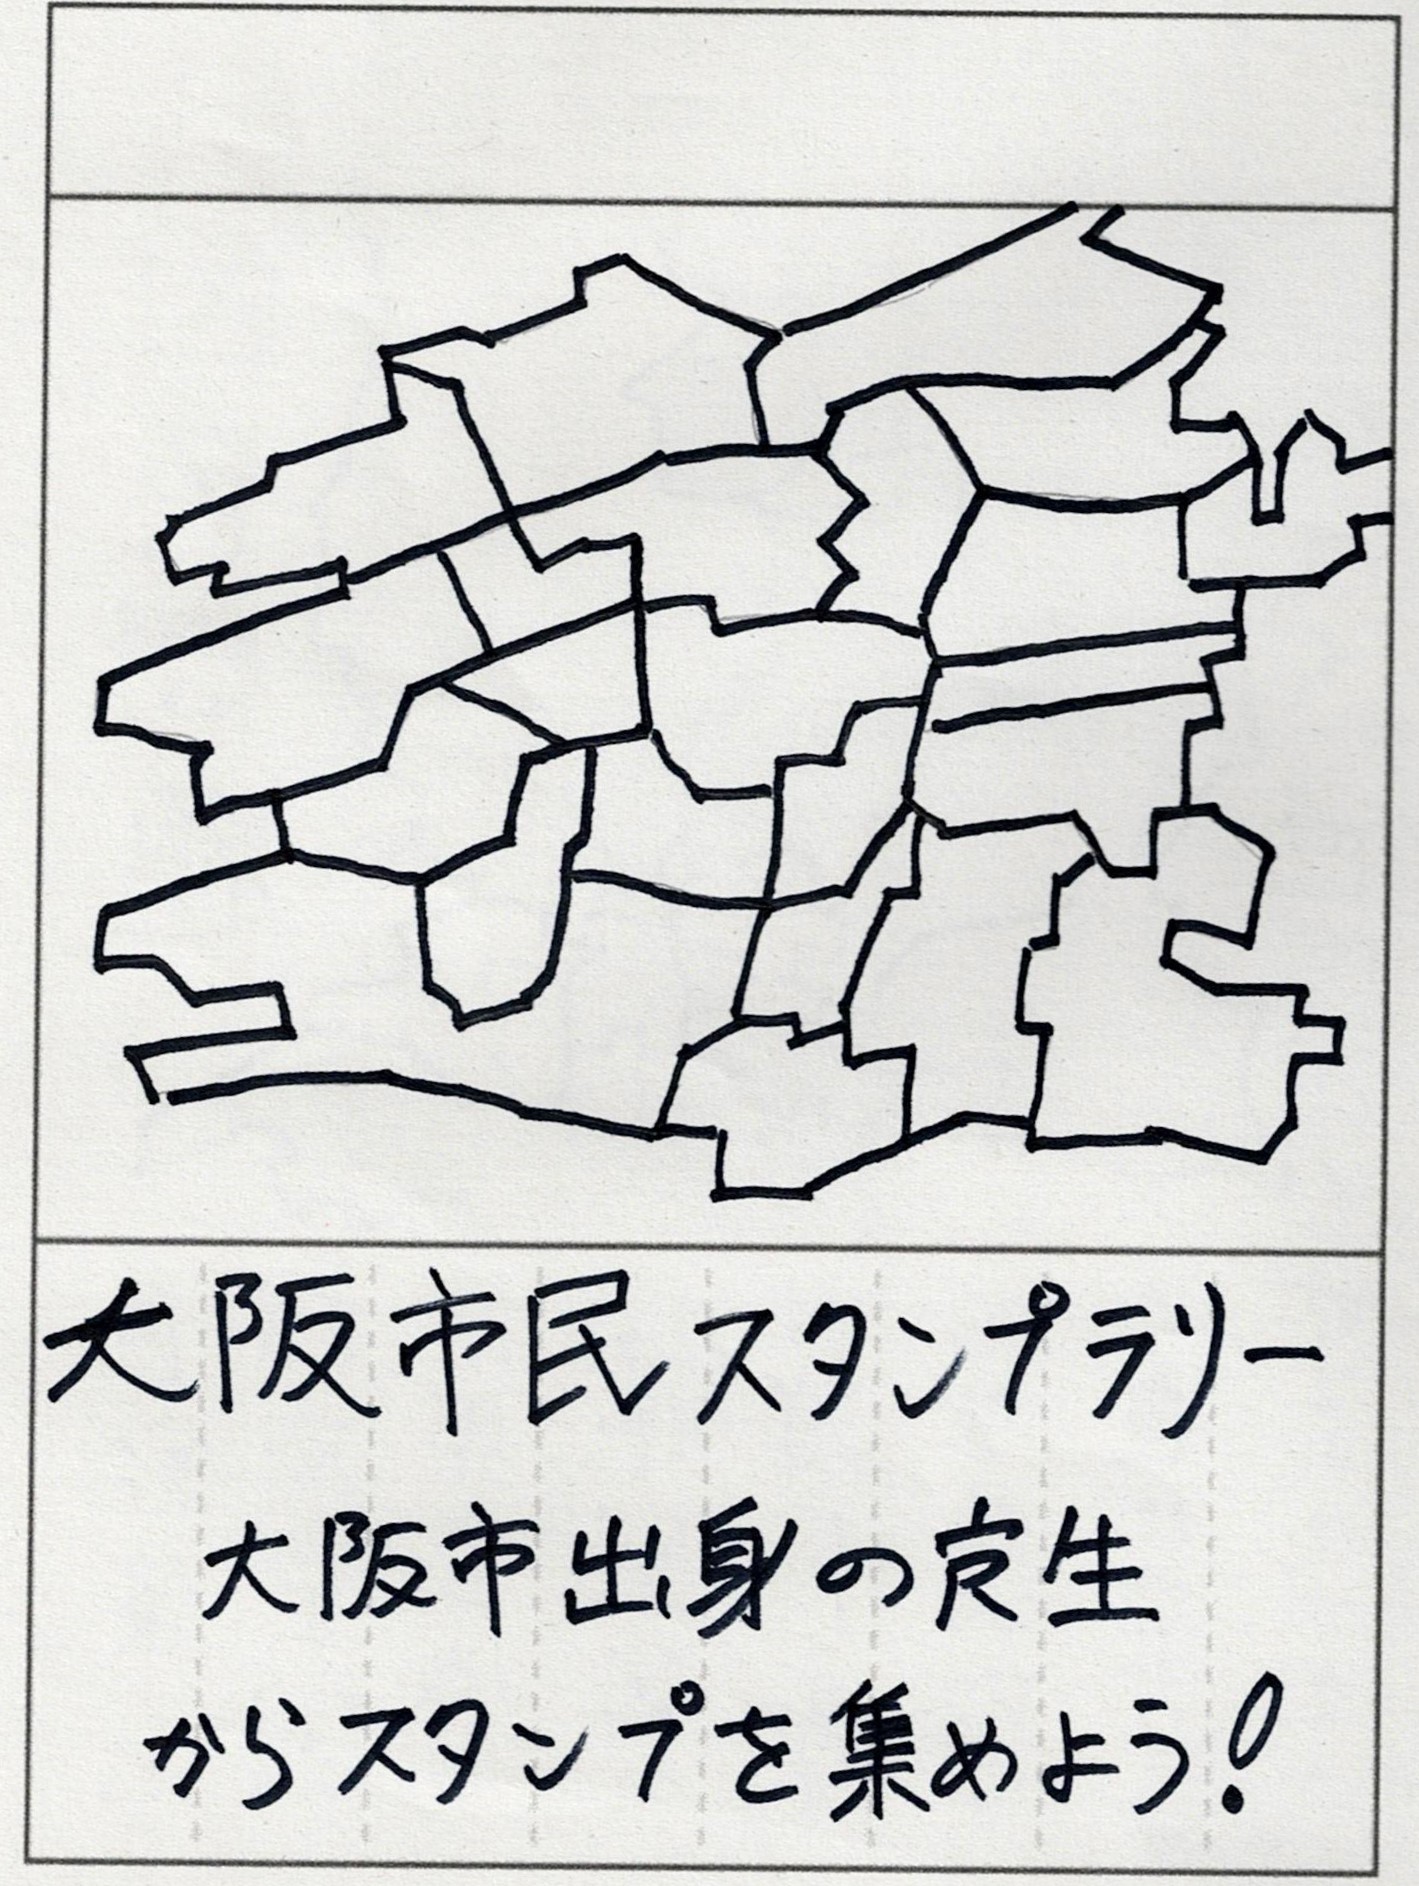 大阪市民スタンプラリー
大阪市出身の定生
からスタンプを集めよう!